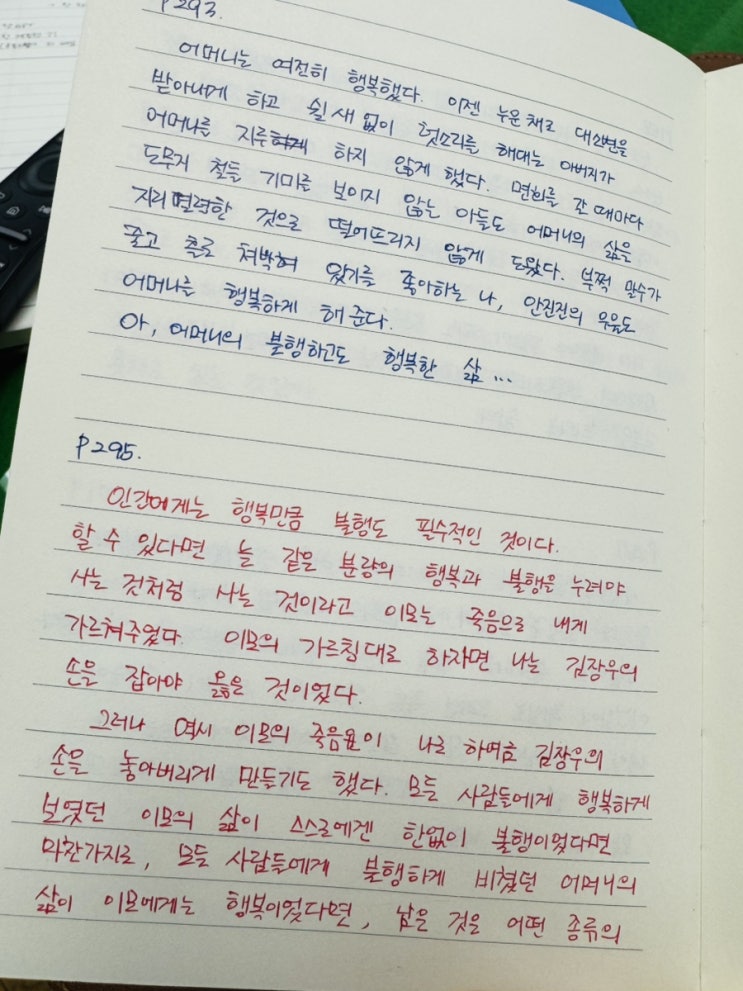 P293.
어머니는 여전히 행복했다. 이젠 누운채로 대소변을
받아내게 하고 쉴새없이 헛소리를 해대는 아버지가
어머니를 지루하게 하지 않게 했다. 면회를 갈 때마다
도무지 철들 기미를 보이지 않는 아들도 어머니의 삶을
지리멸렬한 것으로 떨어뜨리지 않게 도왔다. 부쩍 말수가
줄고 홀로 쳐박혀 있기를 좋아하는 나, 안진진의 우울도
어머니를 행복하게 해준다.
아, 어머니의 불행하고도 행복한 삶...
P295.
인간에게는 행복만큼 불행도 필수적인 것이다.
할 수 있다면 늘 같은 분량의 행복과 불행을 누려야
사는 것처럼 사는 것이라고 이모는 죽음으로 내게
가르쳐주었다. 이모의 가르침대로 하자면 나는 김장우의
손을 잡아야 옳은 것이었다.
그러나 역시 이모의 죽음이 나로 하여금 김장우의
손을 놓아버리게 만들기도 했다. 모든 사람들에게 행복하게
보였던 이모의 삶이 스스로에겐 한없이 불행이었다면
마찬가지로, 모든 사람들에게 불행하게 비쳤던 어머니의
삶이 이모에게는 행복이었다면, 남은 것은 어떤 종류의